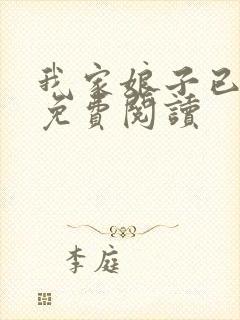 我家娘子已
免費閱讀
李庭